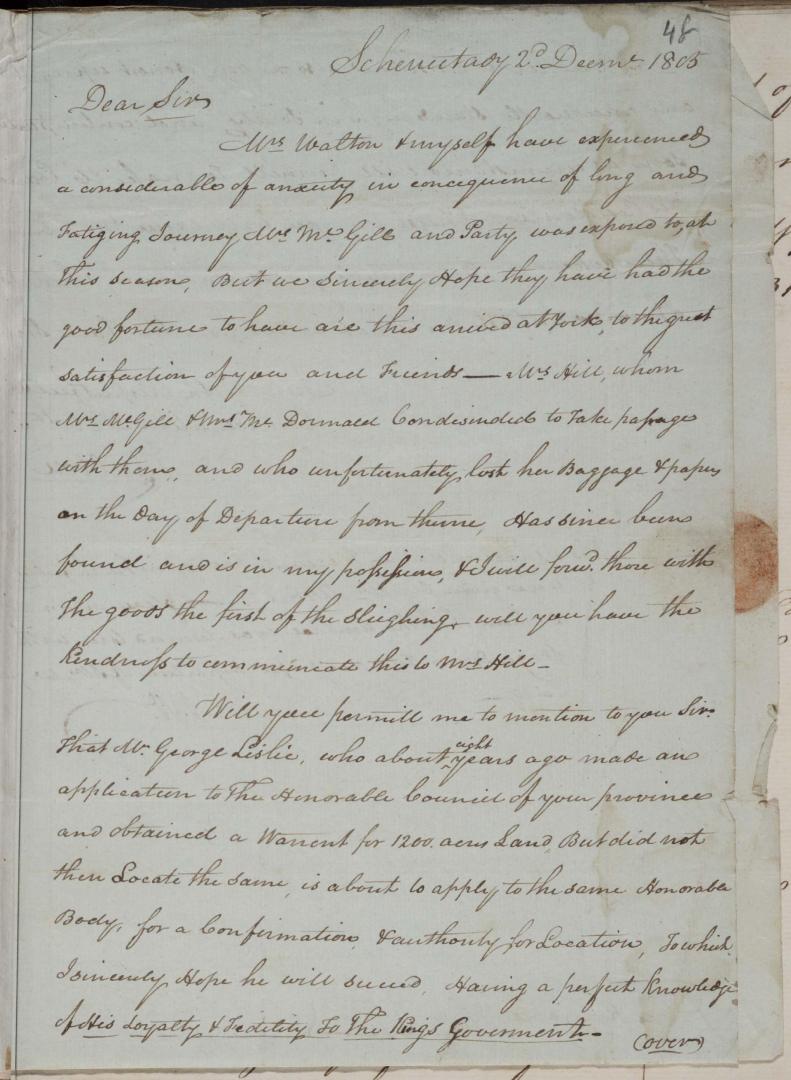 48
Schenectady 2d. Decmr. 1805
Dear Sir
Mrs Walton & myself have experienced
a considerable of anxiety in concequence of long and
Fatiging Journey Mrs McGill and Party was expos'd to, at
This season, But we Sincerely Hope they have had the
good fortune to have are this arrived at York, to the great
satisfaction of you and Friends — Mrs Hill, whom
Mrs McGill & Mrs Mc Donnald Condisended to Take passage
with them, and who unfortunately lost her Baggage & papers
on the Day of Departure from thence, Has since been
found and is in my possission, & I will forwd. those with
The goods the first of the Sleighing, will you have the
Kendness to communicate this to Mrs Hill —
Will you permitt me to mention to you Sir.
That Mr. George Leslie, who about eight years ago made an
application to The Honorable Council of your province
and obtained a Warrent for 1200. acres Land, But did not
then Locate the same, is about to apply to the same Honorable
Body, for a Confirmation, & authority for Location, To which
I sincerely Hope he will succeed, Having a perfect Knowledge
of His Loyalty & Fedility To The Kings Goverment —
(over)